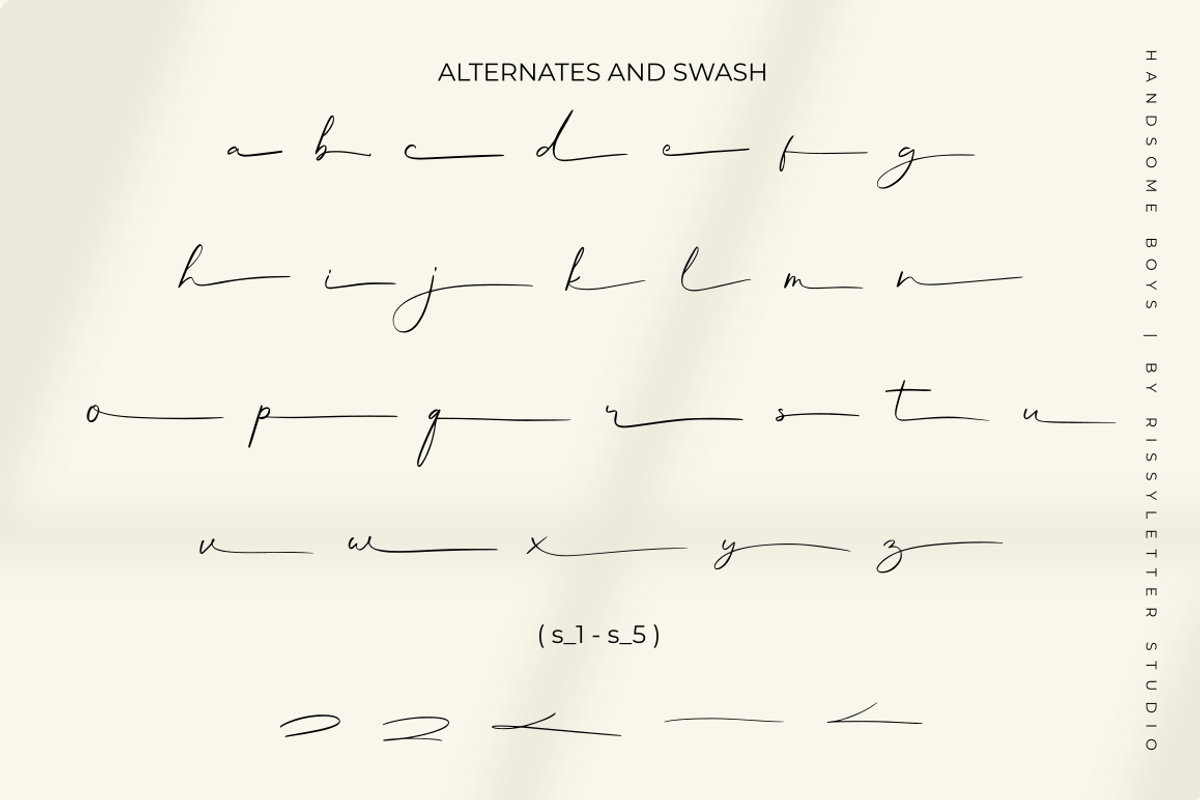 ALTERNATES AND SWASH
a b c d e f g
h i j k l m n
o p q r s t u
v w x y z
( s_1 - s_5 )
HANDSOME BOYS | BY RISSYLETTER STUDIO